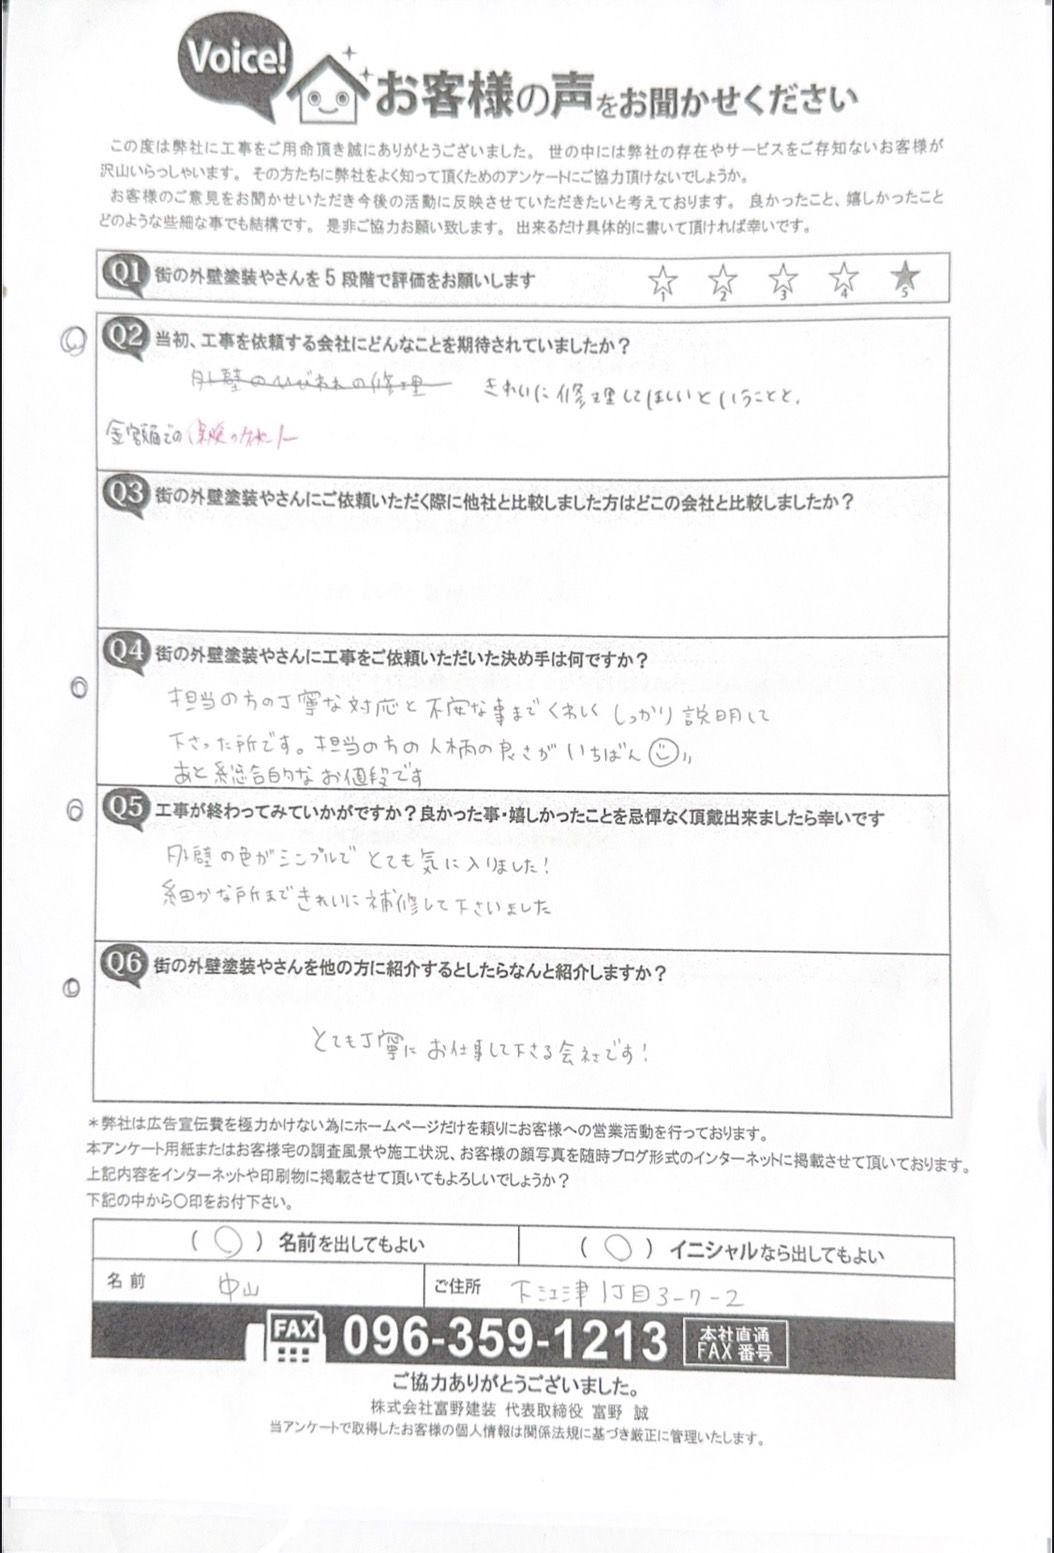 Voice!
お客様の声をお聞かせください
この度は弊社に工事をご用命頂き誠にありがとうございました。 世の中には弊社の存在やサービスをご存知ないお客様が
沢山いらっしゃいます。 その方たちに弊社をよく知って頂くためのアンケートにご協力頂けないでしょうか。
お客様のご意見をお聞かせいただき今後の活動に反映させていただきたいと考えております。 良かったこと、嬉しかったこと
どのような些細な事でも結構です。 是非ご協力お願い致します。 出来るだけ具体的に書いて頂ければ幸いです。
Q1 街の外壁塗装やさんを5段階で評価をお願いします ☆1 ☆2 ☆3 ☆4 ★5
Q2 当初、工事を依頼する会社にどんなことを期待されていましたか？
外壁のひびわれの修理 きれいに修理してほしいということと、
金額面での
Q3 街の外壁塗装やさんにご依頼いただく際に他社と比較しました方はどこの会社と比較しましたか？
Q4 街の外壁塗装やさんに工事をご依頼いただいた決め手は何ですか？
担当の方の丁寧な対応と不安な事までくわしくしっかり説明して
下さった所です。担当の方の人柄の良さがいちばん
あと総合的なお値段です
Q5 工事が終わってみていかがですか？良かった事・嬉しかったことを忌憚なく頂戴出来ましたら幸いです
外壁の色がシンプルでとても気に入りました！
細かな所まできれいに補修して下さいました
Q6 街の外壁塗装やさんを他の方に紹介するとしたらなんと紹介しますか？
とても丁寧にお仕事して下さる会社です！
＊弊社は広告宣伝費を極力かけない為にホームページだけを頼りにお客様への営業活動を行っております。
本アンケート用紙またはお客様宅の調査風景や施工状況、お客様の顔写真を随時ブログ形式のインターネットに掲載させて頂いております。
上記内容をインターネットや印刷物に掲載させて頂いてもよろしいでしょうか？
下記の中から〇印をお付下さい。
( ○ ) 名前を出してもよい ( ○ ) イニシャルなら出してもよい
名前 中山 ご住所 下江津1丁目3-7-2
FAX 096-359-1213 本社直通 FAX番号
ご協力ありがとうございました。
株式会社富野建装 代表取締役 富野 誠
当アンケートで取得したお客様の個人情報は関係法規に基づき厳正に管理いたします。